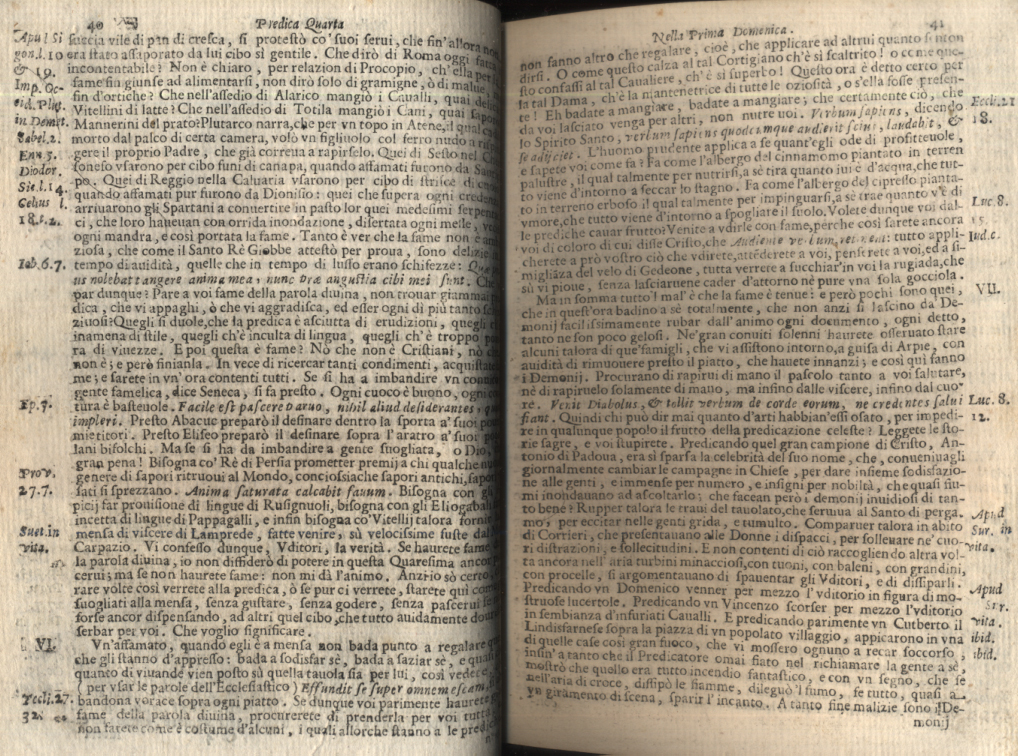 40 Predica Quarta
succia vile di pan di cresca, si protestò co' suoi serui, che fin'allora non
era stato assaporato da lui cibo sì gentile. Che dirò di Roma oggi fatta
incontentabile? Non è chiaro, per relazion di Procopio, ch'ella per
fame fin giunse ad alimentarsi, non dirò solo di gramigne, ò di malue,
fin d'ortiche? Che nell'assedio di Alarico mangiò i Caualli, quai
Vitellini di latte? Che nell'assedio di Totila mangiò i Cani, quai
Mannerini del prato? Plutarco narra, che per vn topo in Atene, il qual
morto dal palco di certa camera, volò vn figliuolo col ferro nudo a
gere il proprio Padre, che già correua a rapirselo. Quei di Sesto nel
soneso vsarono per cibo funi di canapa, quando affamati furono da
po. Quei di Reggio nella Caluaria vsarono per cibo di strisce di
quando affamati pur furono da Dionisio: quei che supera ogni
arriuarono gli Spartani a conuertire in pasto lor quei medesimi
ci, che loro haueuan con orrida inondazione, disertata ogni messe,
ogni mandra, e così portata la fame. Tanto è ver che la fame non è
ziosa, che come il Santo Rè Giobbe attestò per proua, sono delizie
tempo di auidità, quelle che in tempo di lusso erano schifezze: Quæ
us nolebat tangere anima mea, nunc præ angustia cibi mei sunt. Che
par dunque? Pare a voi fame della parola diuina, non trouar giammai
dica, che vi appaghi, ò che vi aggradisca, ed esser ogni dì più tanto
ziuosi? Quegli si duole, che la predica è asciutta di erudizioni, quegli
inamena di stile, quegli ch'è inculta di lingua, quegli ch'è troppo
ra di viuezze. E poi questa è fame? Nò che non è Cristiani, nò
non è; e però finianla. In vece di ricercar tanti condimenti,
me; e sarete in vn'ora contenti tutti. Se si ha a imbandire vn
gente famelica, dice Seneca, si fa presto. Ogni cuoco è buono, ogni
tura è basteuole. Facile est pascere
impleri. Presto Abacuc preparò il desinare dentro la sporta a' suoi
mietitori. Presto Eliseo preparò il desinare sopra l'aratro a' suoi
lani bifolchi. Ma se si ha da imbandire a gente suogliata, o Dio,
gran pena! Bisogna co' Rè di Persia prometter premij a chi qualche
genere di sapori ritruoui al Mondo, conciossiache sapori antichi,
sati si sprezzano. Anima saturata calcabit fauum. Bisogna con gli
picij far prouisione di lingue di Rusignuoli, bisogna con gli Eliogabali
incetta di lingue di Pappagalli, e infin bisogna co' Vitellij talora
mensa di viscere di Lamprede, fatte venire, sù velocissime fuste dal
Carpazio. Vi confesso dunque, Vditori, la verità. Se haurete fame
la parola diuina, io non diffiderò di potere in questa Quaresima ancor
cerui; ma se non haurete fame: non mi dà l'animo. Anzi io sò certo,
rare volte così verrete alla predica, ò se pur ci verrete, starete qui come
suogliati alla mensa, senza gustare, senza godere, senza pascerui
forse ancor dispensando, ad altri quel cibo, che tutto auidamente
serbar per voi. Che voglio significare.
Vn'affamato, quando egli è a mensa non bada punto a regalare
che gli stanno d'appresso: bada a sodisfar sè, bada a saziar sè, e quasi
quanto di viuande vien posto sù quella tauola sia per lui, così vedere
(per vsar le parole dell'Ecclesiastico) Effundit se super omnem escam,
bandona vorace sopra ogni piatto. Se dunque voi parimente haurete
fame della parola diuina, procurerete di prenderla per voi
non farete come è costume d'alcuni, i quali allorche stanno a le
Apul Si
gon.l. 10
& 19.
Imp. Oc-
cid. Plut.
in Demet.
Sabel. 2.
Enn 3.
Diodor.
Sic. l. 14.
Celius l.
18. c. 2.
Iob. 6. 7.
Ep. 7.
Prov.
27. 7.
Suet. in
vita.
VI.
Eccli. 27.
32.
Nella Prima Domenica. 41
non fanno altro che regalare, cioè, che applicare ad altrui quanto
dirsi. O come questo calza al tal Cortigiano ch'è sì scaltrito! o come que-
sto confassi al tal Caualiere, ch'è sì superbo! Questo ora è detto certo per
la tal Dama, ch'è la mantenetrice di tutte le oziosità, o s'ella fosse presen-
te! Eh badate a mangiare, badate a mangiare; che certamente ciò, che
da voi lasciato venga per altri, non nutre voi. Verbum sapiens, dicendo
lo Spirito Santo, verbum sapiens quodcumque audierit scius, laudabit, &
se adijciet. L'huomo prudente applica a se quant'egli ode di profitteuole,
e sapete voi come fa? Fa come l'albergo del cinnamomo piantato in terren
palustre, il qual talmente per nutrirsi, a sè tira quanto iui è d'acqua, che tut-
to viene d'intorno a seccar lo stagno. Fa come l'albergo del cipresso pianta-
to in terreno erboso il qual talmente per impinguarsi, a sè trae quanto v'è di
vmore, che tutto viene d'intorno a spogliare il suolo. Volete dunque voi dal-
le prediche cauar frutto? Venite a vdirle con fame, perche così sarete ancora
voi di coloro di cui disse Cristo, che Audiente verbum, retinent: tutto appli-
cherete a prò vostro ciò che vdirete, attederete a voi, penserete a voi, ed a si-
miglianza del velo di Gedeone, tutta verrete a succhiar'in voi la rugiada, che
sù vi pioue, senza lasciaruene cader d'attorno nè pure vna sola gocciola.
Ma in somma tutto 'l mal' è che la fame è tenue: e però pochi sono quei,
che in quest'ora badino a sè totalmente, che non anzi si lascino da' De-
monij facilissimamente rubar dall'animo ogni documento, ogni detto,
tanto ne son poco gelosi. Ne' gran conuiti solenni haurete osseruato stare
alcuni talora di que' famigli, che vi assistono intorno, a guisa di Arpie, con
auidità di rimuouere presto il piatto, che hauete innanzi; e così qui fanno
i Demonij. Procurano di rapirui di mano il pascolo tanto a voi salutare,
nè di rapiruelo solamente di mano, ma infino dalle viscere, infino dal cuo-
re. Venit Diabolus, & tollit verbum de corde eorum, ne credentes salui
fiant. Quindi chi può dir mai quanto d'arti habbian'essi osato, per impedi-
re in qualunque popolo il frutto della predicazione celeste? Leggete le sto-
rie sagre, e voi stupirete. Predicando quel gran campione di Cristo, An-
tonio di Padoua, era sì sparsa la celebrità del suo nome, che, conueniuagli
giornalmente cambiar le campagne in Chiese, per dare insieme sodisfazio-
ne alle genti, e immense per numero, e insigni per nobiltà, che quasi fiu-
mi inondauano ad ascoltarlo: che facean però i demonij inuidiosi di tan-
to bene? Rupper talora le traui del tauolato, che seruiua al Santo di perga-
mo, per eccitar nelle genti grida, e tumulto. Comparuer talora in abito
di Corrieri, che presentauano alle Donne i dispacci, per solleuare ne' cuo-
ri distrazioni, e sollecitudini. E non contenti di ciò raccogliendo altra vol-
ta ancora nell'aria turbini minacciosi, con tuoni, con baleni, con grandini,
con procelle, si argomentauano di spauentar gli Vditori, e di dissiparli.
Predicando vn Domenico venner per mezzo l'vditorio in figura di mo-
struose lucertole. Predicando vn Vincenzo scorser per mezzo l'vditorio
in sembianza d'infuriati Caualli. E predicando parimente vn Cutberto il
Lindisfarnese sopra la piazza di vn popolato villaggio, appiccarono in vna
di quelle case così gran fuoco, che vi mossero ognuno a recar soccorso,
insin'a tanto che il Predicatore omai fiato nel richiamare la gente a sè,
mostrò che quello era tutto incendio fantastico, e con vn segno, che se
nell'aria di croce, dissipò le fiamme, dileguò 'l fumo, fe tutto, quasi a
vn giramento di scena, sparir l'incanto. A tanto fine malizie sono i De-
monij
Eccli. 21
18.
Luc 8.
15.
Iud. c.
VII.
Luc. 8.
12.
Apud
Sur. in
vita.
Apud
Sur.
vita.
ibid.
ibid.